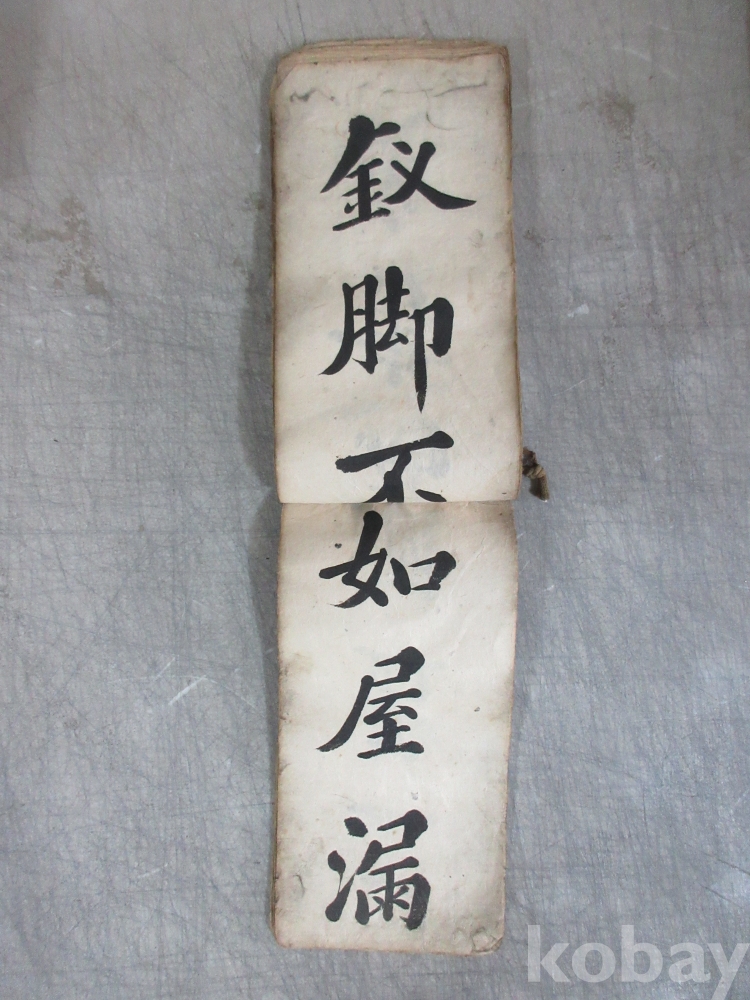 釵脚不如屋漏
kobay